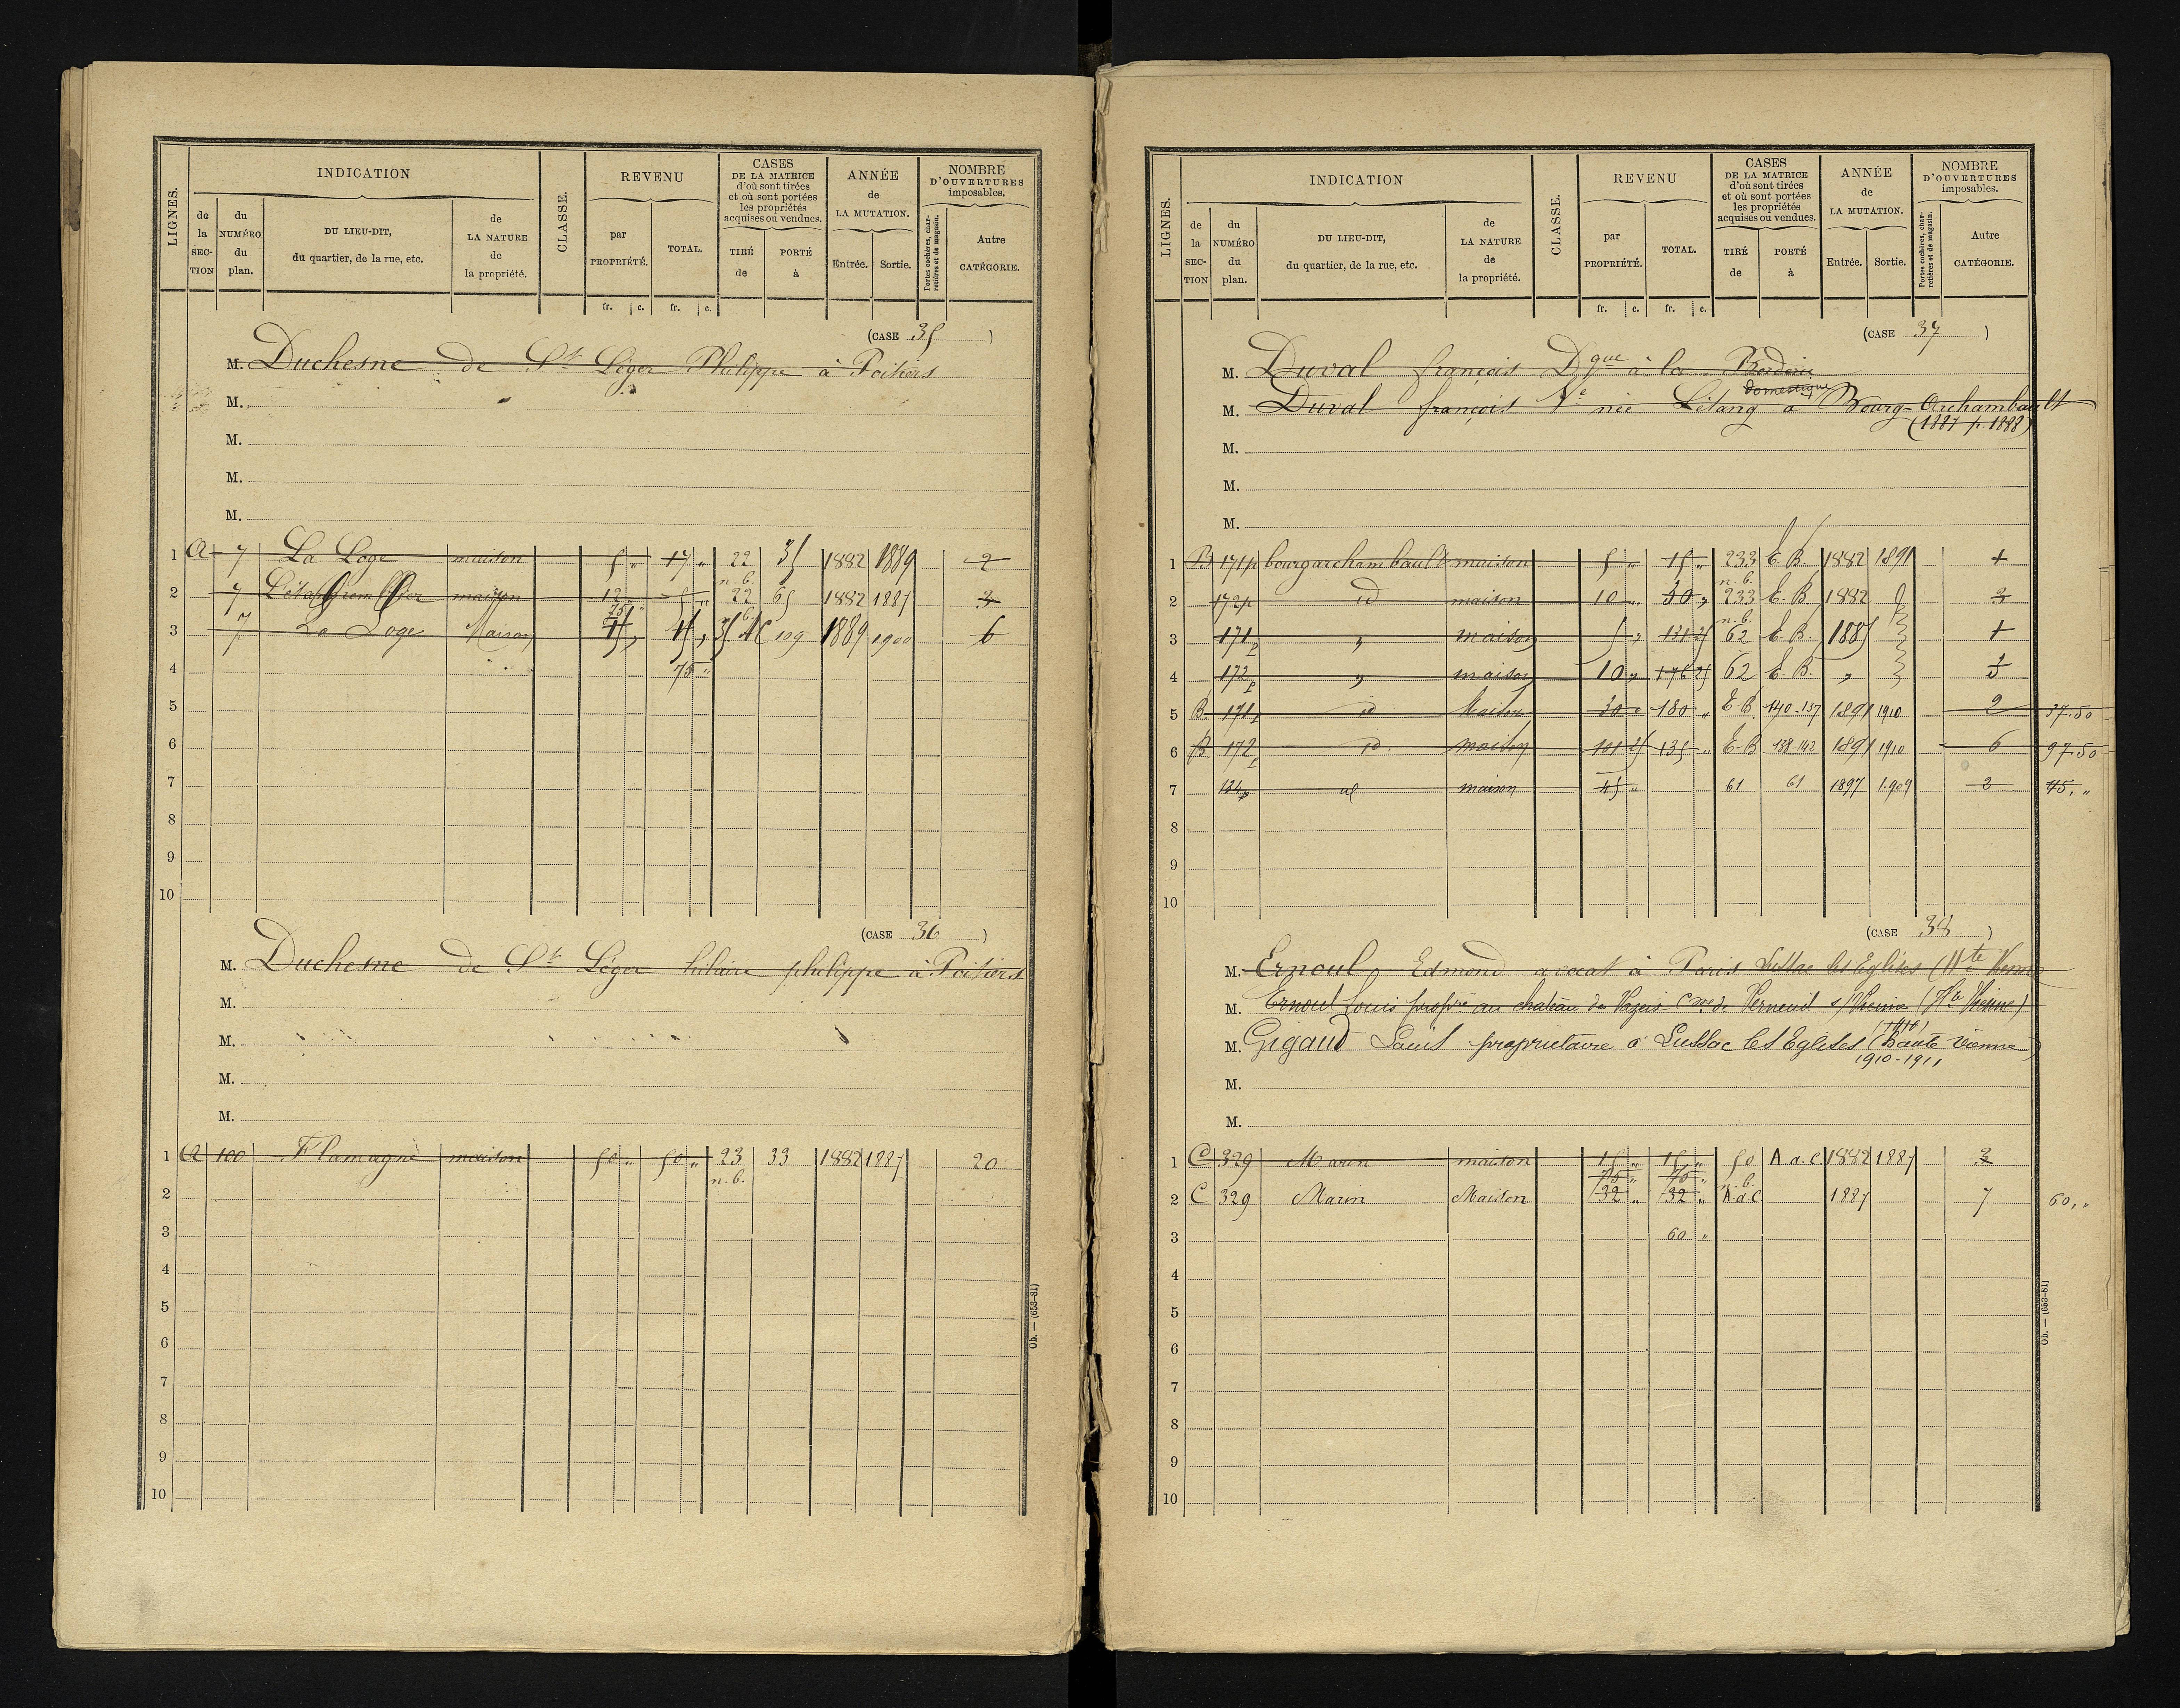 LIGNES. INDICATION CLASSE. REVENU CASES DE LA MATRICE d'où sont tirées et où sont portées les propriétés acquises ou vendues. ANNÉE de LA MUTATION. NOMBRE D'OUVERTURES imposables.
de la SECTION du NUMÉRO du plan. DU LIEU-DIT, du quartier, de la rue, etc. de LA NATURE de la propriété. par PROPRIÉTÉ. TOTAL. TIRÉ de PORTÉ à Entrée. Sortie. Portes cochères, charretières et de magasin. Autre CATÉGORIE.
fr. c. fr. c.
(CASE 35)
M. Duchesne de St Léger Philippe à Poitiers
M.
M.
M.
M.
1 A 7 La Loge maison 5 " 17 " 22 35 1882 1889 2
2 7 maison 12 " 5 " n.b. 22 65 1882 1887 3
3 7 La Loge Maison 75 " 45 " 45 " 109 1889 1900 6
4 75 "
5
6
7
8
9
10
(CASE 36)
M. Duchesne de St Léger hilaire philippe à Poitiers
M.
M.
M.
M.
1 A 100 Flamagne maison 50 " 50 " 23 33 1882 1887 20
2 n.b.
3
4
5
6
7
8
9
10
Ob. — (653-81)
LIGNES. INDICATION CLASSE. REVENU CASES DE LA MATRICE d'où sont tirées et où sont portées les propriétés acquises ou vendues. ANNÉE de LA MUTATION. NOMBRE D'OUVERTURES imposables.
de la SECTION du NUMÉRO du plan. DU LIEU-DIT, du quartier, de la rue, etc. de LA NATURE de la propriété. par PROPRIÉTÉ. TOTAL. TIRÉ de PORTÉ à Entrée. Sortie. Portes cochères, charretières et de magasin. Autre CATÉGORIE.
fr. c. fr. c.
(CASE 37)
M. Duval françois Dque à la Borderie
domestique
M. Duval françois Ve née Létang à Bourg-Archambault
(1887 p. 1888)
M.
M.
M.
1 B 171p bourgarchambault maison 5 " 15 " 233 E.B. 1882 1891 1
2 172p id maison 10 " 30 " n.b. 233 E.B. 1882 3
3 171p " maison 5 " 131 25 n.b. 62 E.B. 1885 1
4 172p " maison 10 " 176 25 62 E.B. "
5 B 171p id Maison 30 " 180 " E.B. 140-137 1891 1910 2 37.50
6 B 172p id. maison 101 25 135 " E.B 138-142 1891 1910 6 97.50
7 134p id maison 45 " 61 61 1897 1909 2 45,"
8
9
10
(CASE 38)
M. Ernoul, Edmond avocat à Paris Lussac les Eglises (Hte Vienne
M. Ernoul Louis propre au chateau de Cne de Verneuil s/Vienne (Hte Vienne)
(1910)
M. Gigaud Louis propriétaire à Lussac les Eglises (haute vienne)
1910-1911
M.
M.
1 C 329 Marin maison 15 " 15 " 50 A.d.C 1882 1887 3
2 C 329 Marin Maison 75 " 32 " 75 " 32 " n.b. A.d.C 1887 7 60,"
3 60 "
4
5
6
7
8
9
10
Ob. — (653-81)